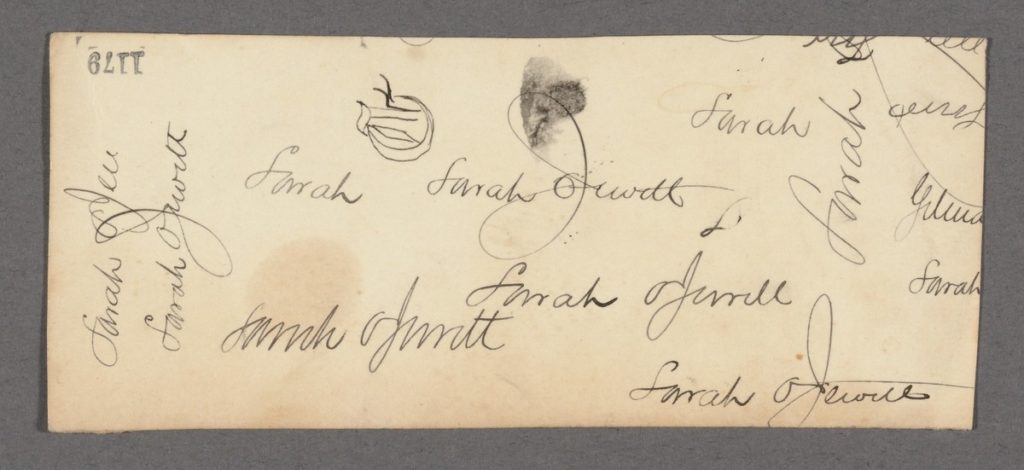 1179
Sarah
Sarah O Jewett
Sarah
Sarah
S
Sarah O Jewett
Sarah O Jewett
Sarah O Jewett
Sarah
Sarah O Jew
Sarah O Jewett